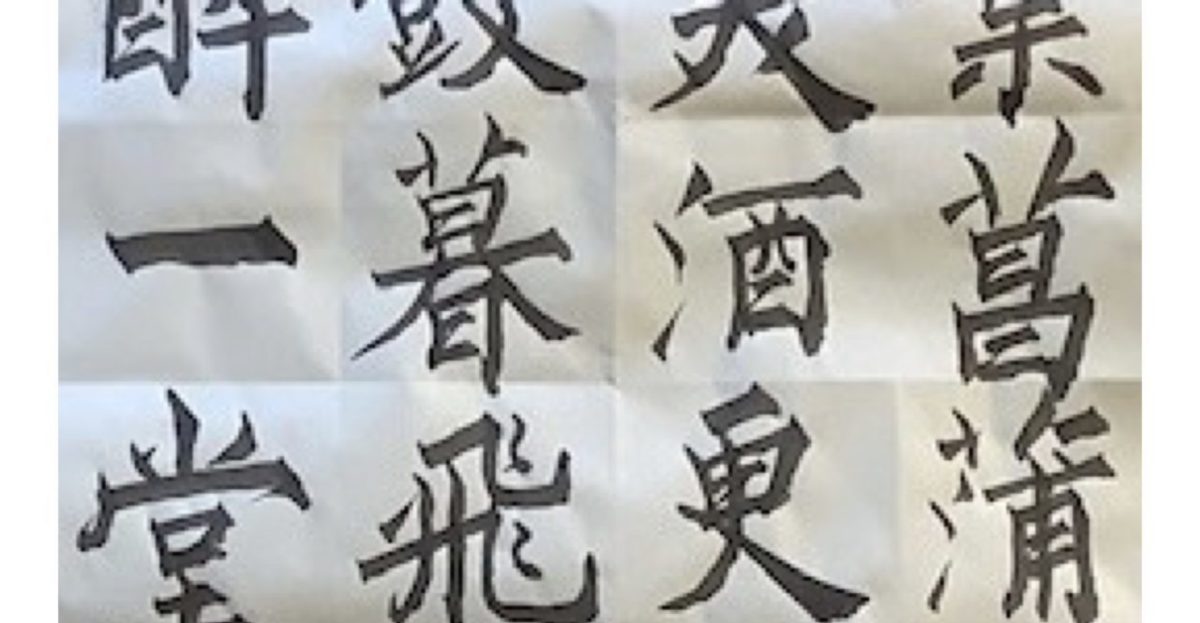 菖蒲
酒更
暮飛
一堂